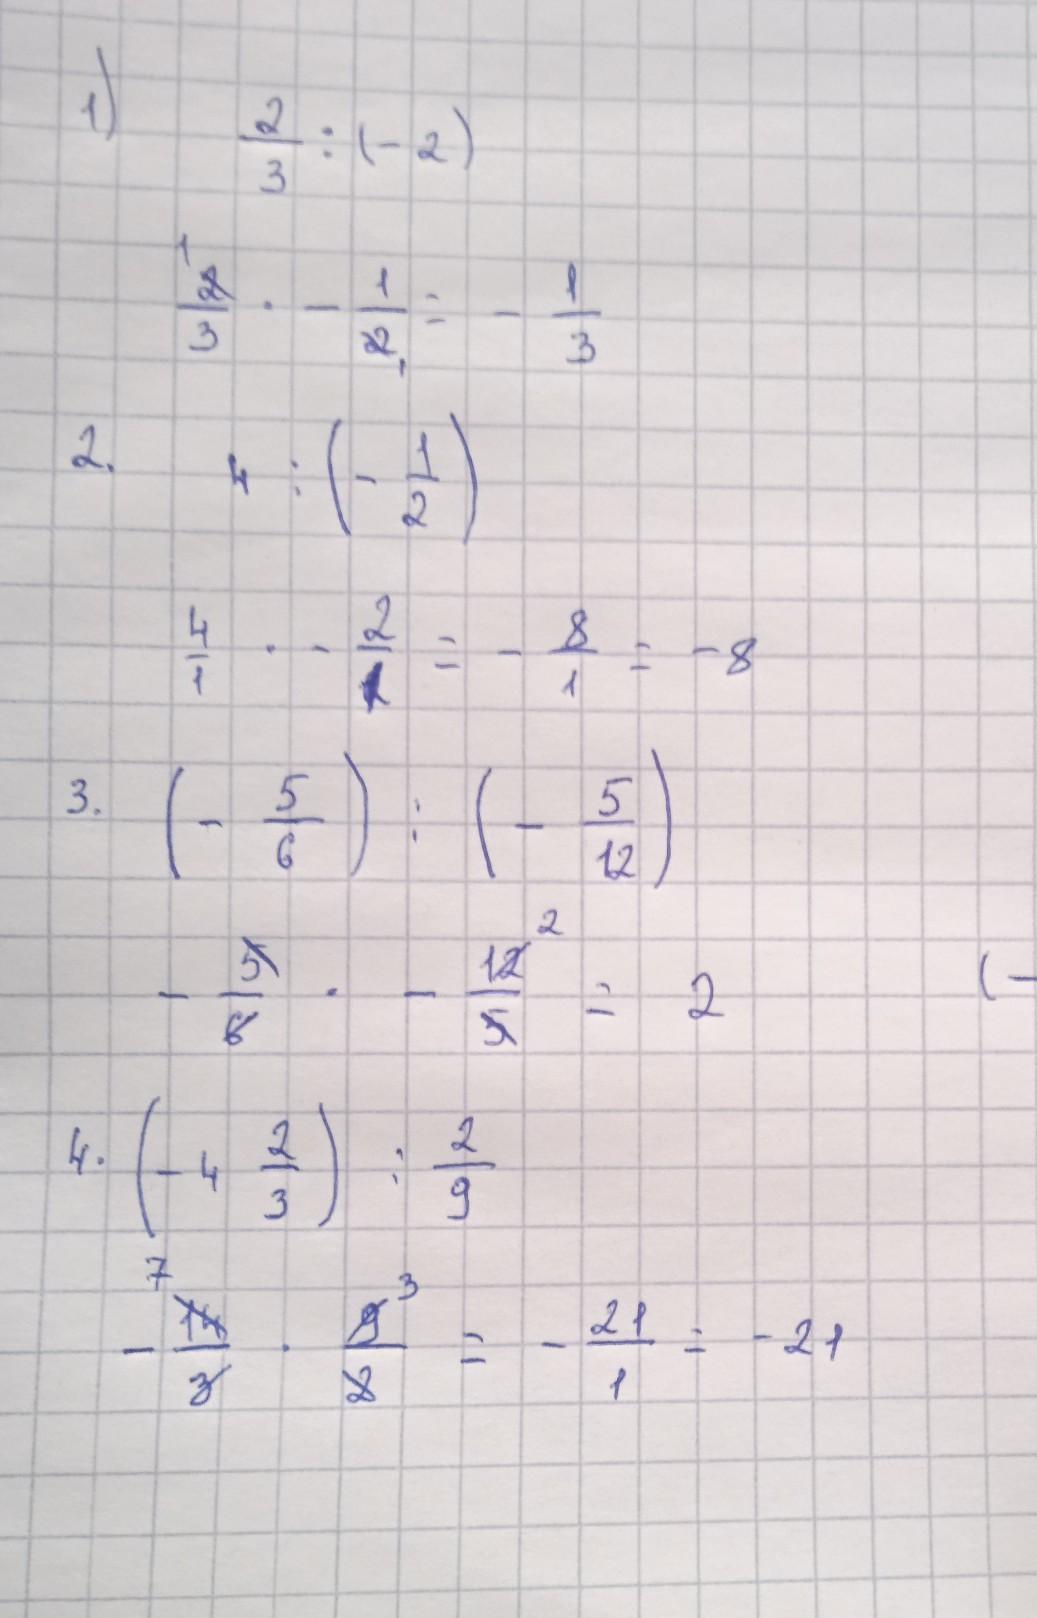 1) 2/3 : (- 2)
1 2/3 · - 1/2 1 = - 1/3
2. 4 : (- 1/2)
4/1 · - 2/1 = - 8/1 = -8
3. (- 5/6) : (- 5/12)
- 5/6 · - 12/5 2 = 2 (-
4. (- 4 2/3) : 2/9
- 7 14/3 · 9/2 3 = - 21/1 = -21